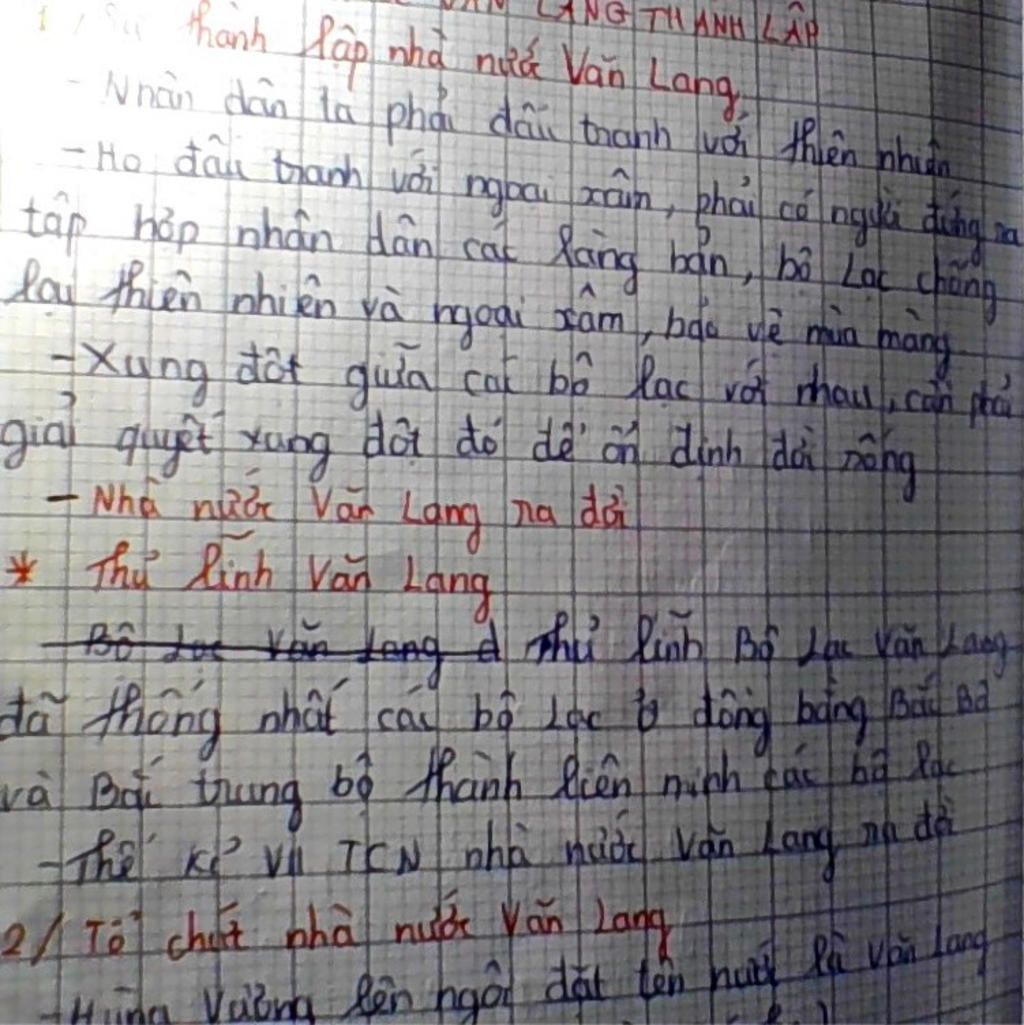 VĂN LANG THÀNH LẬP
1/ Sự thành lập nhà nước Văn Lang
- Nhân dân ta phải đấu tranh với thiên nhiên
- Họ đấu tranh với ngoại xâm, phải có người đứng ra
tập hợp nhân dân các làng bản, bộ Lạc chống
lại thiên nhiên và ngoại xâm, bảo vệ mùa màng
- Xung đột giữa các bộ lạc với nhau, cần phải
giải quyết xung đột đó để ổn định đời sống
- Nhà nước Văn Lang ra đời
* Thủ lĩnh Văn Lang
Bộ Lạc Văn Lang đ Thủ lĩnh Bộ Lạc Văn Lang
đã thống nhất các bộ Lạc ở đồng bằng Bắc Bộ
và Bắc trung bộ thành liên minh các bộ lạc
- Thế kỉ VII TCN nhà nước Văn Lang ra đời
2/ Tổ chức nhà nước Văn Lang
- Hùng Vương lên ngôi đặt tên nước là Văn Lang